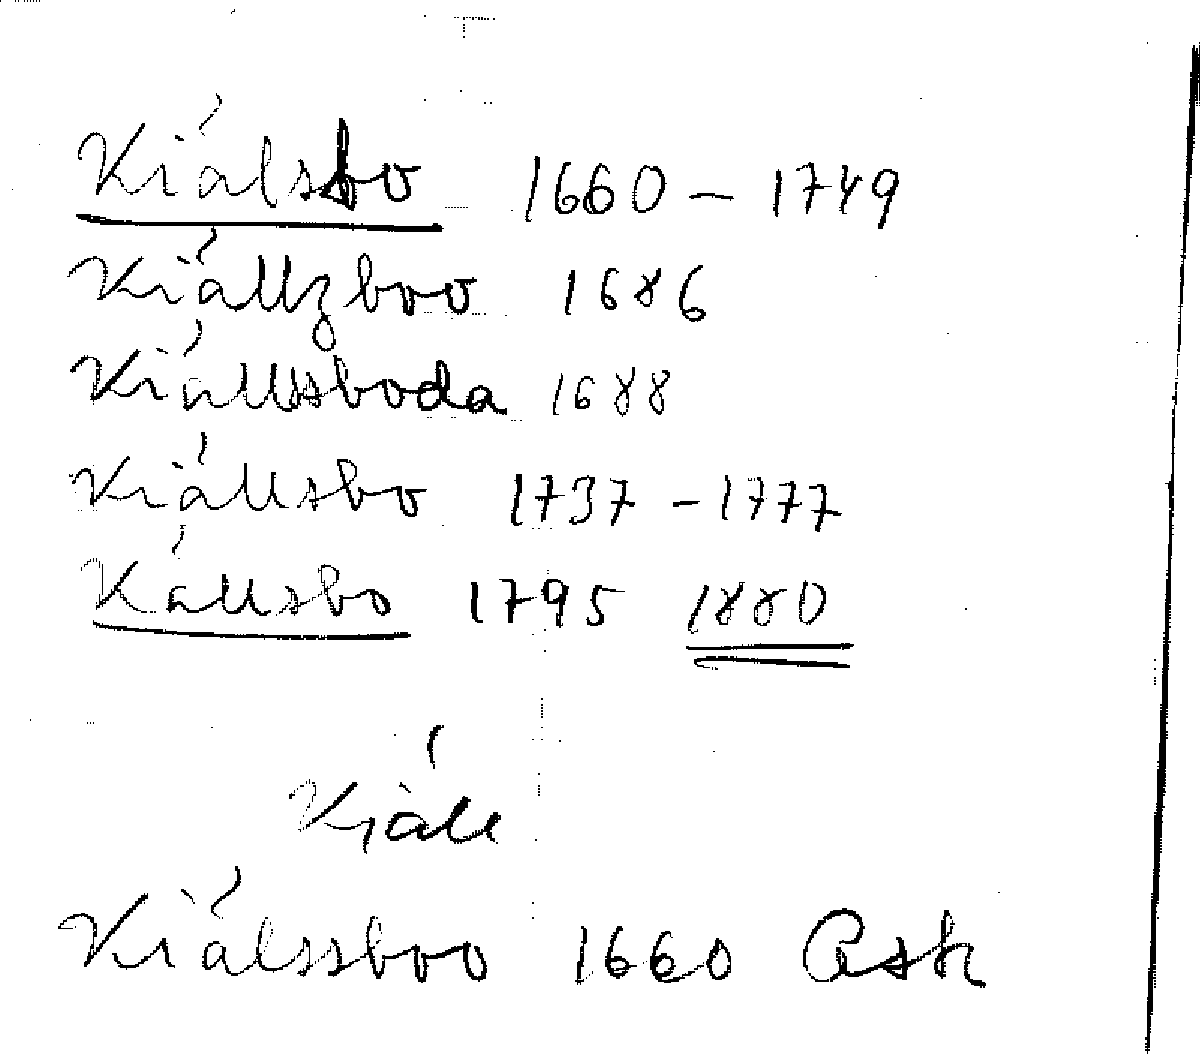 Kiälsbo 1660 – 1749
Kiällzboo 1686
Kiällssboda 1688
Kiällsbo 1737 – 1777
Källsbo 1795 1880
Kjäll
Kiälssboo 1660 Ask